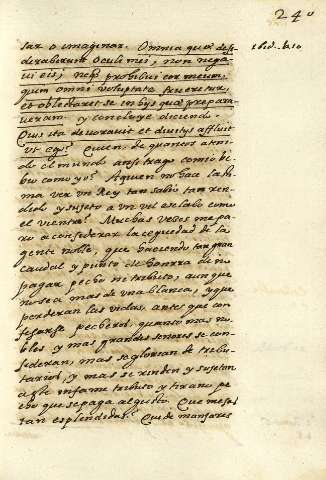 240
sar o imaginar. Omnia quæ desi-
deraberunt oculi mei, non nega-
ui eis; neq; prohibui cor meum,
quin omni voluptate frueretur,
et oblectaret se in hijs quæ prepara-
ueram. y concluye diciendo.
Quis ita deuorauit et dilitijs affluit
ut ego? Quien de quantos a teni-
do el mundo ansi trago como be-
bio como yo? A quien no hace lasti-
ma ver un Rey tan sabio tan ren-
dido y sujeto a un vil esclabo como
el vientre? Muchas veces me pa-
ro a considerar la ceguedad de la
gente noble, que haciendo tan gran
caudal y punto de honrra de no
pagar pecho ni tributo, aun que
no sea mas de una blanca, y que
perderan las vidas, antes que con-
fesarse pecheros, quanto mas no-
bles y mas grandes señores se con-
sideran, mas se glorian de tribu-
tarios, y mas se rinden y sujetan
a este infame tributo y tirano pe-
cho que se paga al gusto. Que mesas
tan esplendidas? Que de manjares